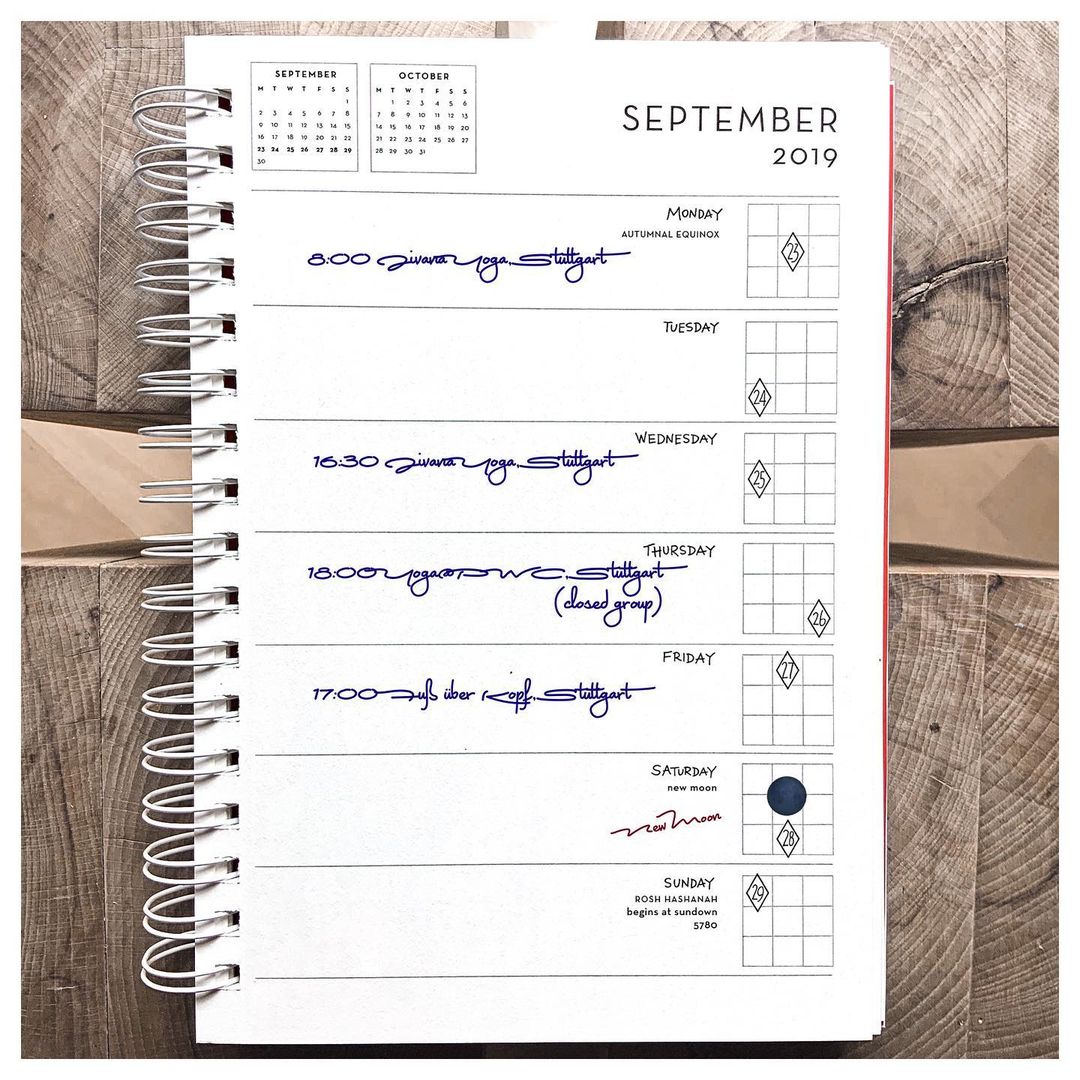 SEPTEMBER
M T W T F S S
1
2 3 4 5 6 7 8
9 10 11 12 13 14 15
16 17 18 19 20 21 22
23 24 25 26 27 28 29
30
OCTOBER
M T W T F S S
1 2 3 4 5 6
7 8 9 10 11 12 13
14 15 16 17 18 19 20
21 22 23 24 25 26 27
28 29 30 31
SEPTEMBER
2019
MONDAY
AUTUMNAL EQUINOX
23
8:00 Jivana Yoga, Stuttgart
TUESDAY
24
WEDNESDAY
25
16:30 Jivana Yoga, Stuttgart
THURSDAY
18:00 Yoga@PWC, Stuttgart
(closed group)
26
FRIDAY
27
17:00 Fuß über Kopf, Stuttgart
SATURDAY
new moon
New Moon
28
SUNDAY
29
ROSH HASHANAH
begins at sundown
5780